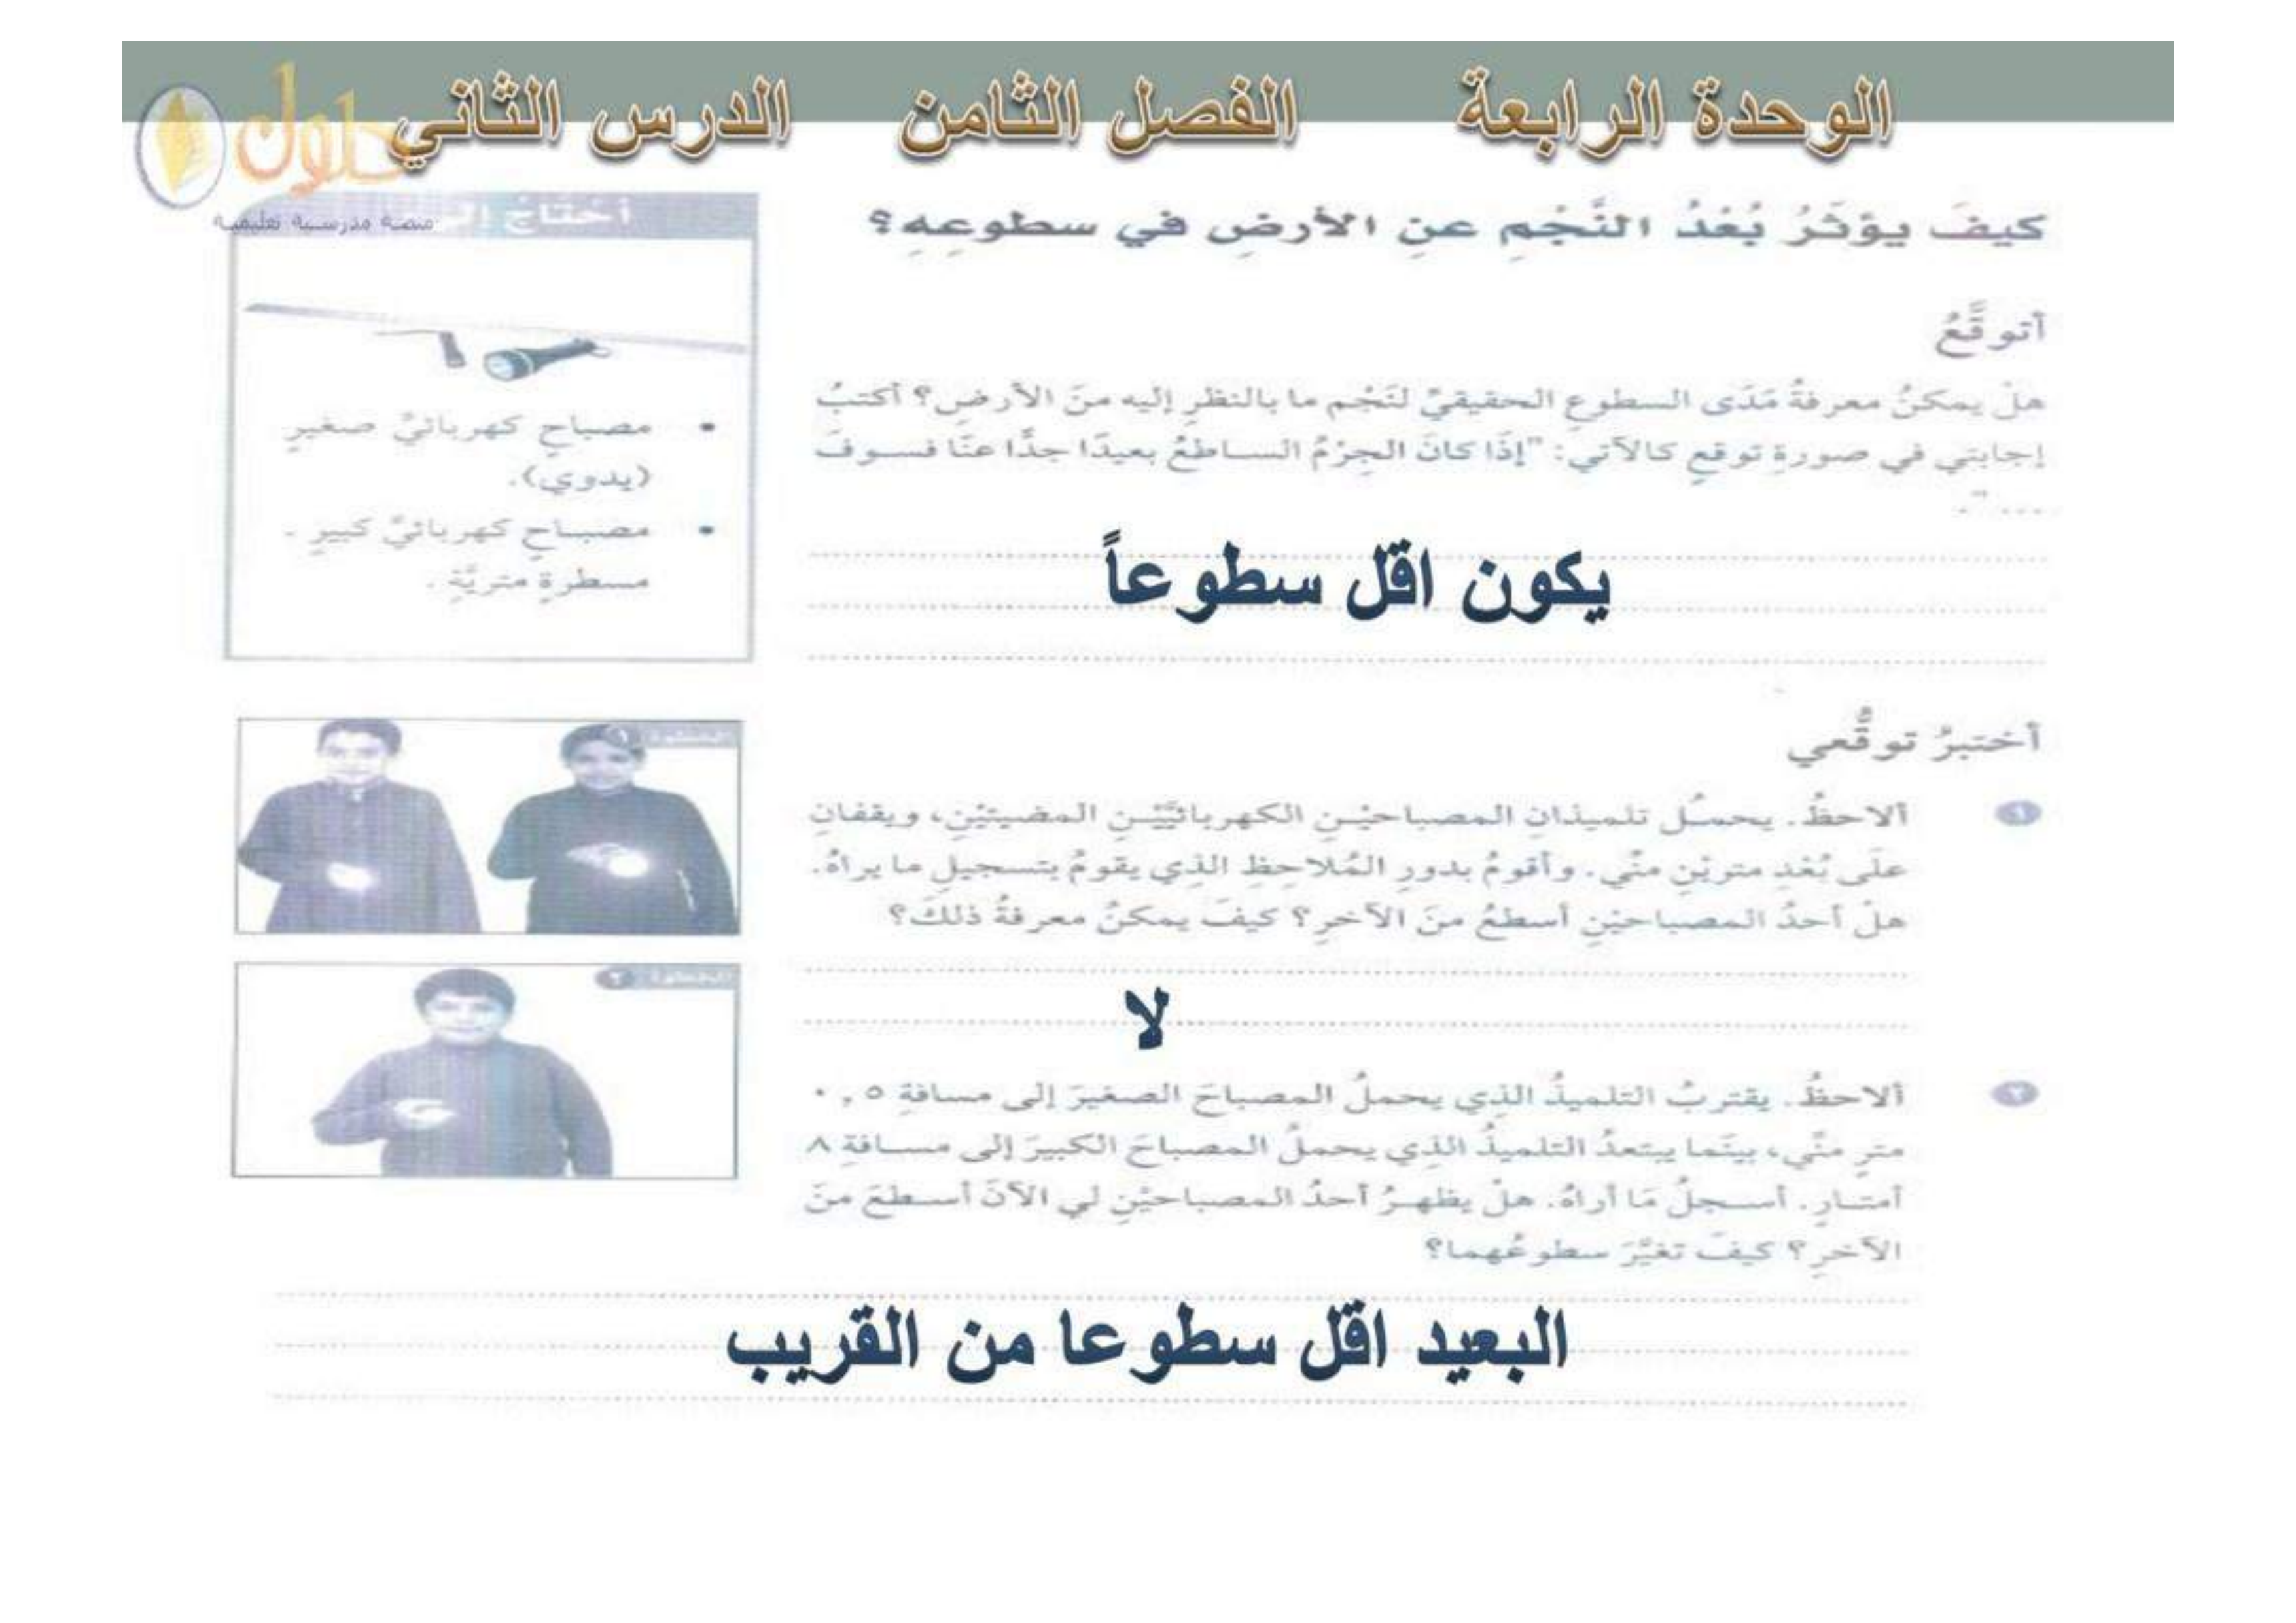 الوحدة الرابعة الفصل الثامن الدرس الثاني
حلول
منصة مدرسية تعليمية
كيفَ يؤثرُ بُعْدُ النَّجْمِ عنِ الأرضِ في سطوعِهِ؟
أتوقَّعُ
هلْ يمكنُ معرفةُ مَدَى السطوعِ الحقيقيِّ لنَجْم ما بالنظرِ إليه منَ الأرضِ؟ أكتبُ
إجابتِي في صورةِ توقعٍ كالآتي: "إذَا كانَ الجِرْمُ الساطعُ بعيدًا جدًّا عنَّا فسوفَ
...."
يكون اقل سطوعاً
أحتاجُ
• مصباحٍ كهربائيٍّ صغيرٍ
(يدوي).
• مصباحٍ كهربائيٍّ كبيرٍ .
مسطرةٍ متريَّةٍ .
أختبرُ توقُّعي
١ ألاحظُ. يحملُ تلميذانِ المصباحيْنِ الكهربائيَّيْنِ المضيئيْنِ، ويقفانِ
علَى بُعْدِ متريْنِ منِّي. وأقومُ بدورِ المُلاحِظِ الذي يقومُ بتسجيلِ ما يراهُ.
هلْ أحدُ المصباحيْنِ أسطعُ منَ الآخرِ؟ كيفَ يمكنُ معرفةُ ذلكَ؟
لا
٢ ألاحظُ. يقتربُ التلميذُ الذي يحملُ المصباحَ الصغيرَ إلى مسافةِ ٠,٥
مترٍ منِّي، بينَما يبتعدُ التلميذُ الذي يحملُ المصباحَ الكبيرَ إلى مسافةِ ٨
أمتارٍ. أسجلُ مَا أراهُ. هلْ يظهرُ أحدُ المصباحيْنِ لي الآنَ أسطعَ منَ
الآخرِ؟ كيفَ تغيَّرَ سطوعُهما؟
البعيد اقل سطوعا من القريب
الخطوة ١
الخطوة ٢